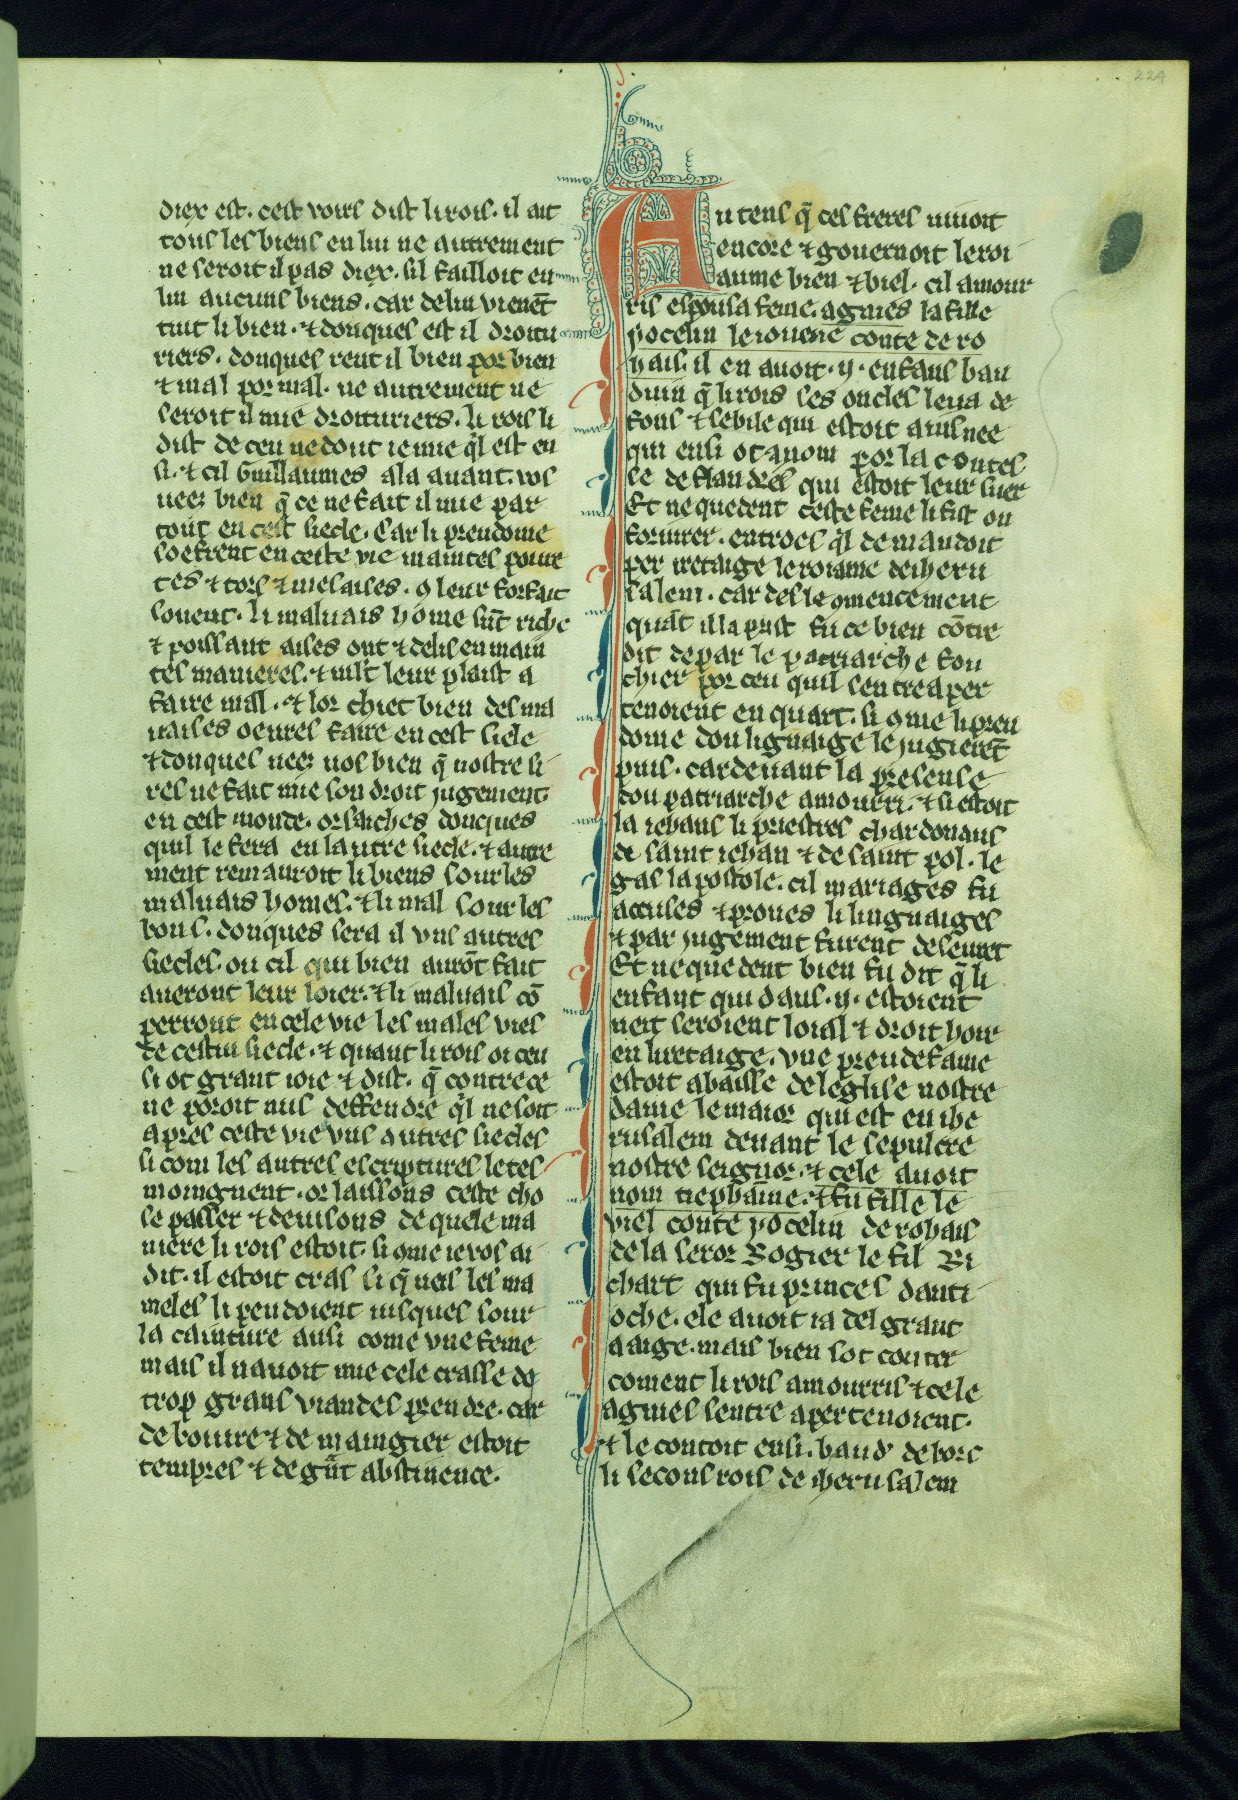 224
diex est. cest voirs dist li rois. il ait
tous les biens en lui ne autrement
ne seroit il pas diex. sil failloit en
lui aucuns biens. car de lui vienēt
tuit li bien. ⁊ donques est il droitu
riers. donques rent il bien por bien
⁊ mal por mal. ne autrement ne
seroit il mie droituriers. li rois li
dist de ceu ne dout ie mie q̄l est en
si. ⁊ cil Guillaumes ala auant. vos
ueez bien q̄ ce ne fait il mie par
tout en cest siecle. Car li preudome
soefrent en ceste vie maintes pour
tes ⁊ tors ⁊ mesaises. ꝯ leur forfait
souent. li maluais home sūt riche
⁊ poissant aises ont ⁊ delis en main
tes manieres. ⁊ mlt leur plaist a
faire mal. ⁊ lor chiet bien des ma
uaises oeures faire en cest siecle
⁊ donques ueez uos bien q̄ nostre si
res ne fait mie son droit jugement
en cest monde. or saiches donques
quil le fera en lautre siecle. ⁊ autre
ment remauroit li biens sour les
maluais homes. ⁊ li mal sour les
bons. donques sera il vns autres
siecles. ou cil qui bien aurōt fait
aueront leur loier. ⁊ li maluais cō
perront en cele vie les males vies
de cestui siecle. ⁊ quant li rois oi ceu
si ot grant ioie ⁊ dist. q̄ contre ce
ne poroit nus deffendre q̄l ne soit
apres ceste vie vns autres siecles
si com les autres escriptures le tes
moingnent. or laissons ceste cho
se passer ⁊ deuisons de quele ma
niere li rois estoit. si ꝯme ie vos ai
dit. il estoit cras si q̄ neis les ma
meles li pendoient iusques sour
la cainture ausi come vne feme
mais il nauoit mie cele crasse de
trop grans viandes prendre. car
de boiure ⁊ de maingier estoit
tempres ⁊ de gn̄t abstinence.
Au tens q̄ ces freres viuoit
encore ⁊ gouernoit le roi
aume bien ⁊ biel. cil amour
ris espousa feme. agnies la fille
yocelin le iouene conte de ro
hais. il en auoit .ij. enfans bau
duin q̄ li rois ses oncles leua de
fons ⁊ sebile qui estoit ainsnee
qui ensi ot a nom por la contes
se de flandres qui estoit leur suer
Et nequedent ceste feme li fist on
foriurer. entroes q̄l demandoit
per iretaige le roiame de iheru
salem. car des le ꝯmencement
quāt il la prist fu ce bien cōtre
dit de par le patriarche fou
chier por ceu quil sentreaper
tenoient en quart. si ꝯme li preu
dome dou lignaige le jugierēt
puis. car deuant la presense
dou patriarche amourri. ⁊ si estoit
la iehans li priestres chardonaus
de saint iehan ⁊ de saint pol. le
gas lapostole. cil mariages fu
accuses ⁊ proues li linguaiges
⁊ par jugement furent deseuret
Et nequedent bien fu dit q̄ li
enfant qui daus .ij. estoient
neit seroient loial ⁊ droit hoir
en liretaige. vne preude fame
estoit abaisse de leglise nostre
dame le maior qui est en ihe
rusalem deuant le sepulcre
nostre seignor. ⁊ cele auoit
nom tiephāine. ⁊ fu fille le
viel conte yocelin de rohais
de la seror Rogier le fil Ri
chart qui fu princes danti
oche. ele auoit ia del grant
aaige. mais bien sot conter
coment li rois amourris ⁊ cele
agnies sentre apertenoient.
⁊ le contoit ensi. baud' de borc
li secons rois de iherusalem